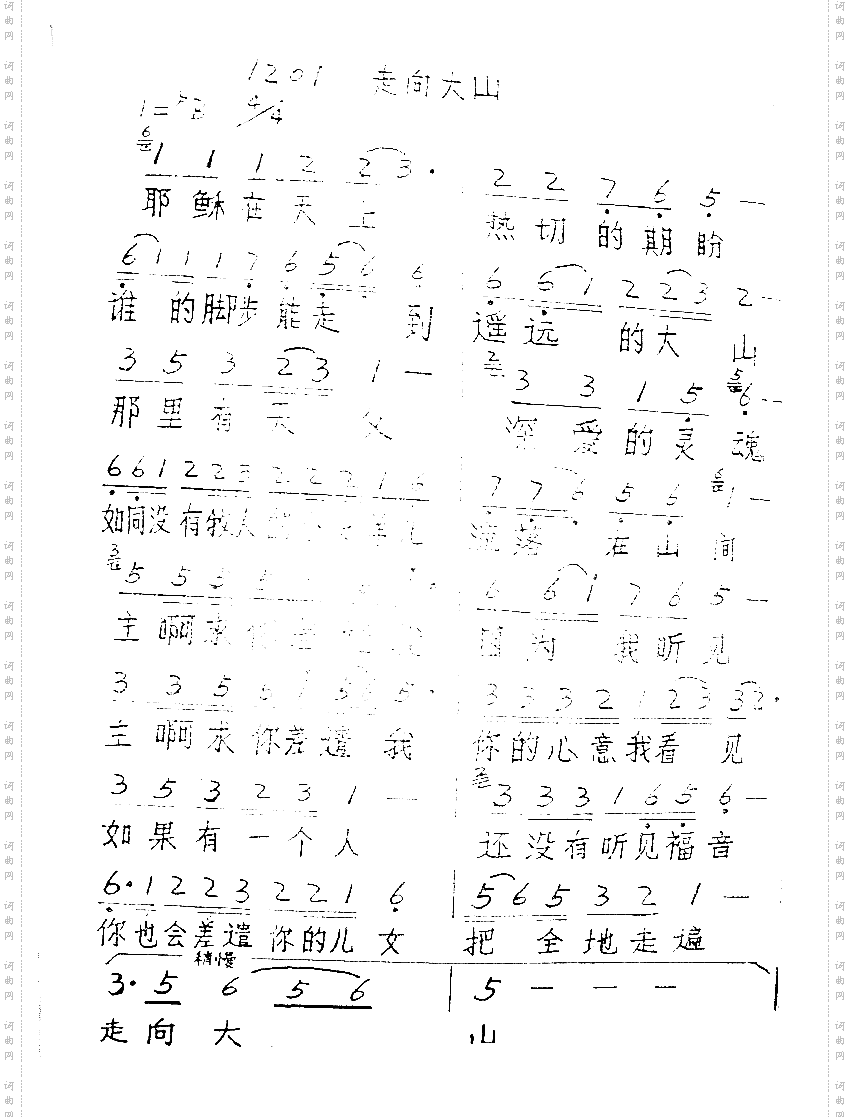 1201 走向大山
1=♭B 4/4
6 1 1 1 2 2 3 · 2 2 7 6 5 —
耶稣在天上 热切的期盼
6 1 1 1 7 6 5 6 6 6 6 1 2 2 3 2 —
谁的脚步能走到 遥远的大山
3 5 3 2 3 1 — 2 3 3 1 5 5 6 —
那里有天父 深爱的灵魂
6 6 1 2 2 3 2 2 2 1 6 7 7 6 5 6 6 1 —
如同没有牧人 流落在山间
3 5 5 5 6 6 1 7 6 5 —
主啊求你 因为我听见
3 3 5 5 5 · 3 3 3 2 1 2 3 3 2 ·
主啊求你差遣我 你的心意我看见
3 5 3 2 3 1 — 3 3 3 3 1 6 5 6 —
如果有一个人 还没有听见福音
6 · 1 2 2 3 2 2 1 6 5 6 5 3 2 1 —
你也会差遣你的儿女 把全地走遍
稍慢
3 · 5 6 5 6 5 — — —
走向大山
词曲网